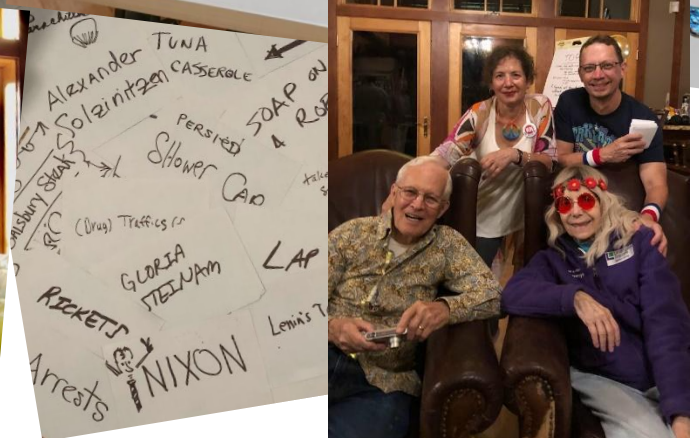 TUNA
CASSEROLE
Alexander
Solzinitzen
SOAP ON
A ROP
PERSIED
SHOWER
CAP
Salsbury Steak
(Drug) Traffics
GLORIA
STEINAM
LAP
RICKETS
Lenin's T
NIXON
Arrests